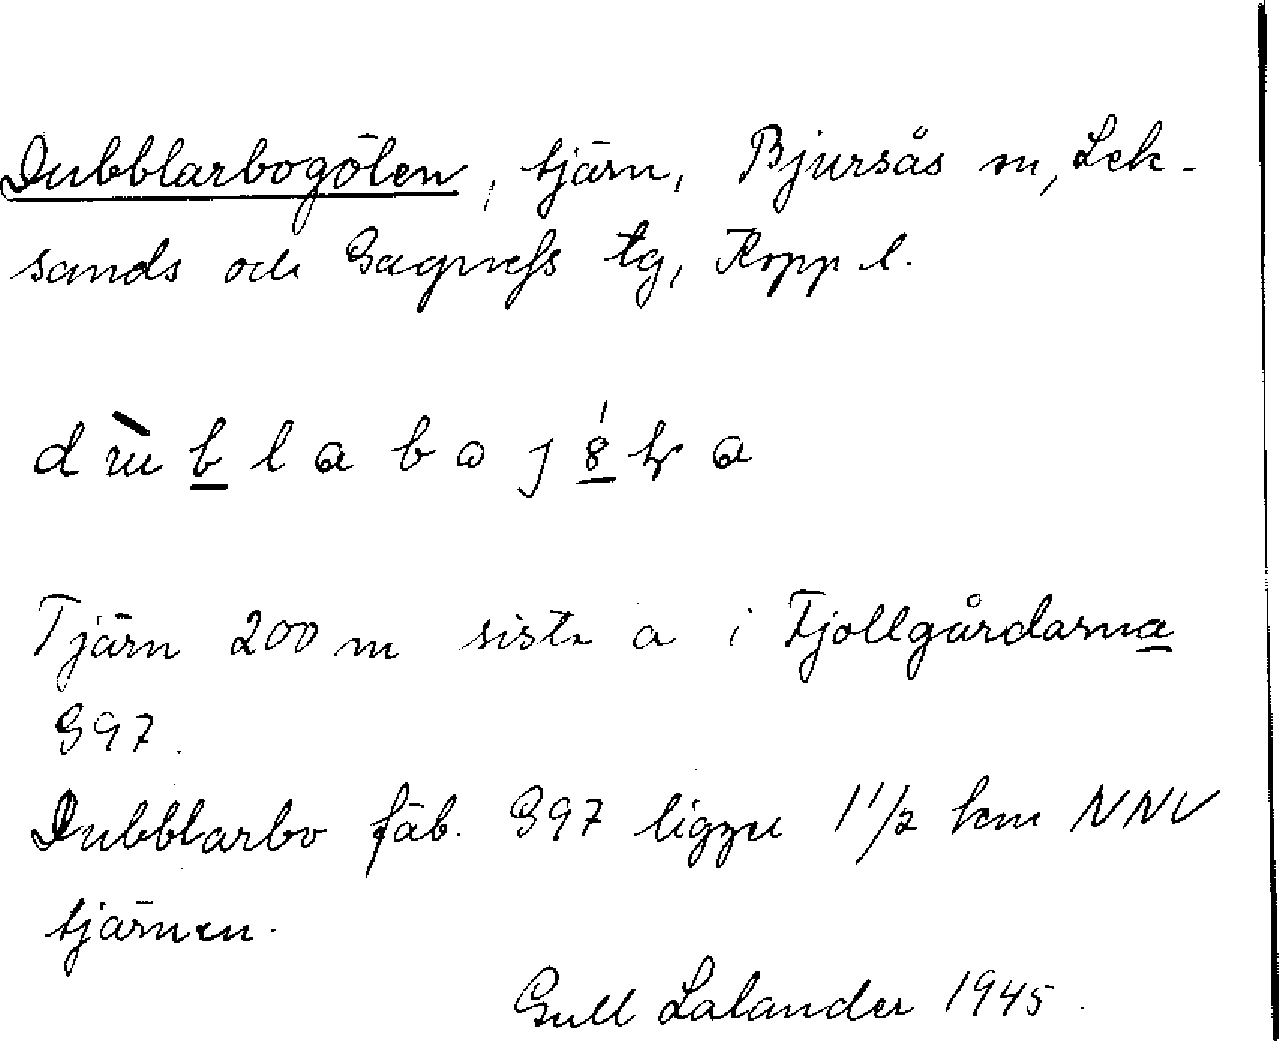 Dubblarbogölen, tjärn, Bjursås sn, Lek-
sands och Gagnefs tg, Kopp l.
Tjärn 200 m sista a i Fjollgårdarna
G97.
Dubblarbo fäb. G97 ligger 1 1/2 km NNV
tjärnen.
Gull Lalander 1945.